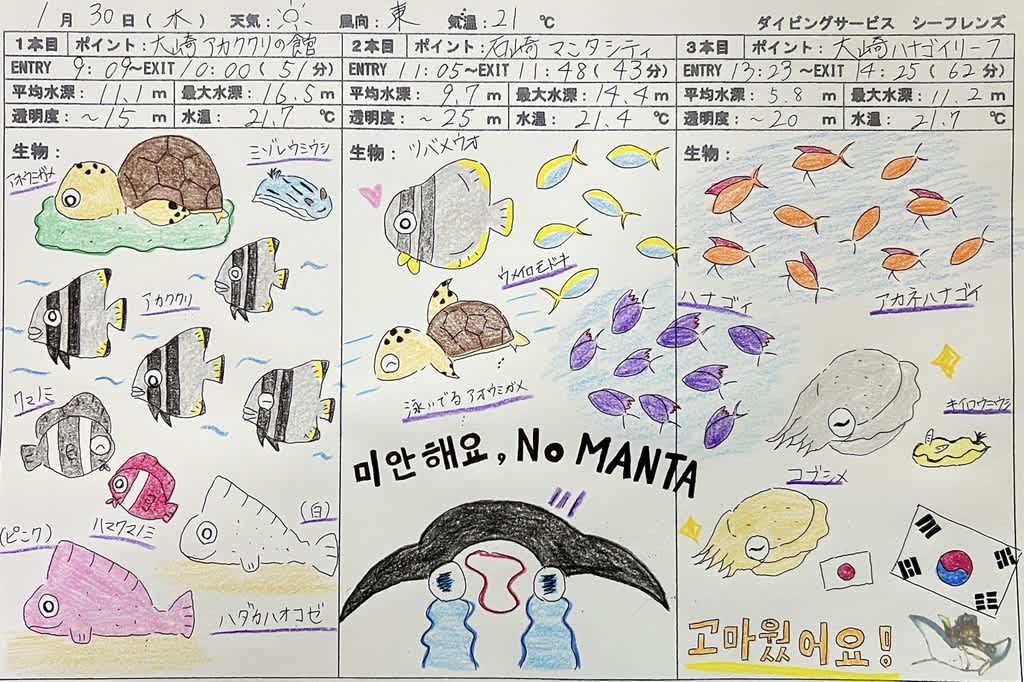 1月30日(水) 天気: 風向:東 気温:21℃ ダイビングサービス シーフレンズ
1本目 ポイント:大崎アカククリの館
ENTRY 9:09~EXIT 10:00(51分)
平均水深:11.1m 最大水深:16.5m
透明度:~15m 水温:21.7℃
生物:
アオウミガメ
ミゾレウミウシ
アカククリ
クマノミ
ハマクマノミ
(白)
(ピンク)
ハダカハオコゼ
2本目 ポイント:石崎マンタシティ
ENTRY 11:05~EXIT 11:48(43分)
平均水深:9.7m 最大水深:14.4m
透明度:~25m 水温:21.4℃
生物:
ツバメウオ
ウメイロモドキ
泳いでるアオウミガメ
미안해요, No MANTA
3本目 ポイント:大崎ハナゴイリーフ
ENTRY 13:23~EXIT 14:25(62分)
平均水深:5.8m 最大水深:11.2m
透明度:~20m 水温:21.7℃
生物:
ハナゴイ
アカネハナゴイ
キイロウミウシ
コブシメ
고마웠어요!